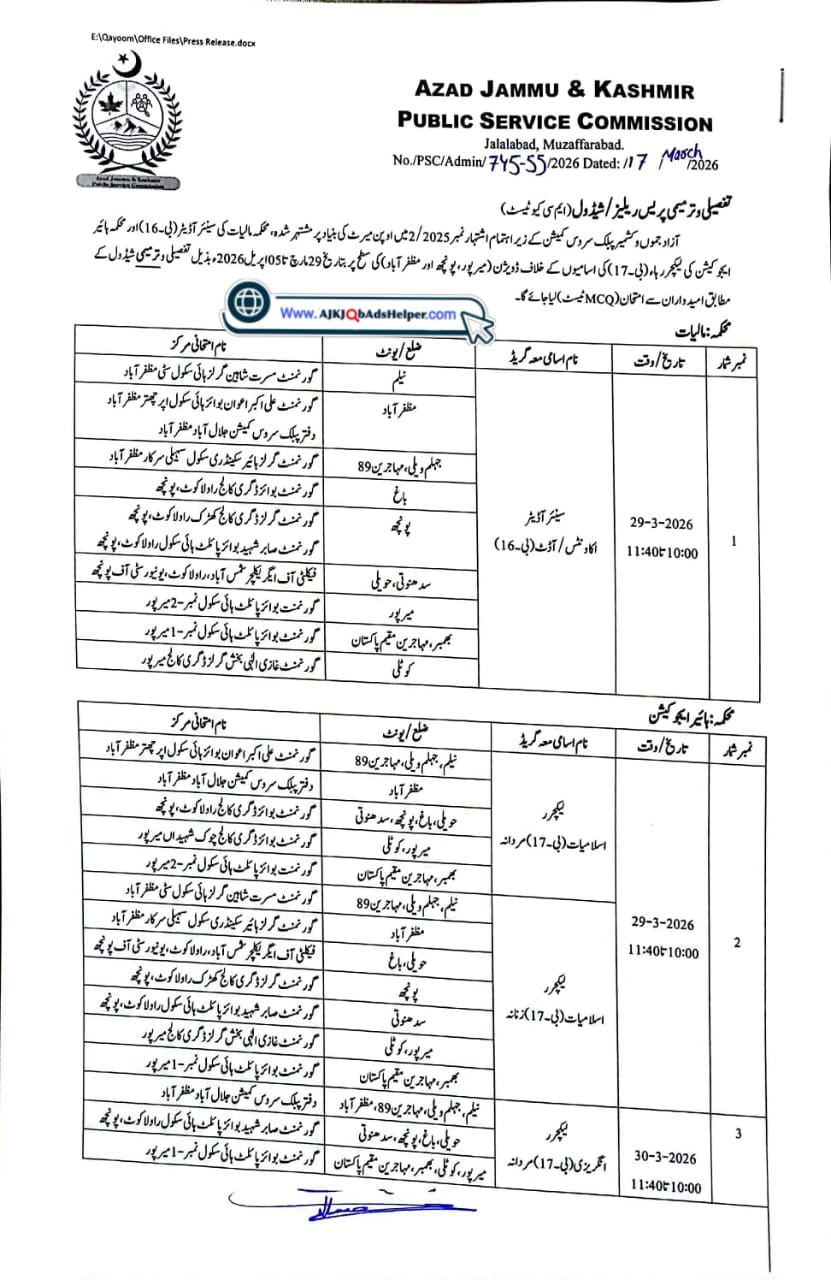 E:\Qayoom\Office Files\Press Release.docx
AZAD JAMMU & KASHMIR
PUBLIC SERVICE COMMISSION
Jalalabad, Muzaffarabad.
No./PSC/Admin/745-55/2026 Dated: /17/March/2026
Azad Jammu & Kashmir
Public Service Commission
تفصیلی و ترمیمی پریس ریلیز/شیڈول (ایم سی کیو ٹیسٹ)
آزاد جموں و کشمیر پبلک سروس کمیشن کے زیر اہتمام اشتہار نمبر 2/2025 میں اوپن میرٹ کی بنیاد پر مشتہر شدہ، محکمہ مالیات کی سینئر آڈیٹر (بی-16) اور محکمہ ہائیر
ایجوکیشن کی لیکچررہاء (بی-17) کی اسامیوں کے خلاف ڈویژن (میرپور، پونچھ اور مظفرآباد) کی سطح پر بتاریخ 29 مارچ تا 05 اپریل 2026ء بذیل تفصیلی و ترمیمی شیڈول کے
مطابق امیدواران سے امتحان (MCQ ٹیسٹ) لیا جائے گا۔
www.AJKJobAdsHelper.com
محکمہ: مالیات
نمبر شمار تاریخ/وقت نام اسامی معہ گریڈ ضلع/یونٹ نام امتحانی مرکز
1 29-3-2026 10:00 تا 11:40 سینئر آڈیٹر اکاؤنٹس/آڈٹ (بی-16)
نیلم گورنمنٹ مسرت شاہین گرلز ہائی سکول سٹی مظفرآباد
مظفرآباد گورنمنٹ علی اکبر اعوان بوائز ہائی سکول اپر چھتر مظفرآباد
دفتر پبلک سروس کمیشن جلال آباد مظفرآباد
جہلم ویلی، مہاجرین 89 گورنمنٹ گرلز ہائیر سیکنڈری سکول سہیلی سرکار مظفرآباد
باغ گورنمنٹ بوائز ڈگری کالج راولاکوٹ، پونچھ
پونچھ گورنمنٹ گرلز ڈگری کالج کھڑک راولاکوٹ، پونچھ
گورنمنٹ صابر شہید بوائز پائلٹ ہائی سکول راولاکوٹ، پونچھ
سدھنوتی، حویلی فیکلٹی آف ایگریکلچر شمس آباد، راولاکوٹ، یونیورسٹی آف پونچھ
میرپور گورنمنٹ بوائز پائلٹ ہائی سکول نمبر-2 میرپور
بھمبر، مہاجرین مقیم پاکستان گورنمنٹ بوائز پائلٹ ہائی سکول نمبر-1 میرپور
کوٹلی گورنمنٹ غازی الٰہی بخش گرلز ڈگری کالج میرپور
محکمہ: ہائیر ایجوکیشن
نمبر شمار تاریخ/وقت نام اسامی معہ گریڈ ضلع/یونٹ نام امتحانی مرکز
2 29-3-2026 10:00 تا 11:40 لیکچرر اسلامیات (بی-17) مردانہ
نیلم، جہلم ویلی، مہاجرین 89 گورنمنٹ علی اکبر اعوان بوائز ہائی سکول اپر چھتر مظفرآباد
مظفرآباد دفتر پبلک سروس کمیشن جلال آباد مظفرآباد
حویلی، باغ، پونچھ، سدھنوتی گورنمنٹ بوائز ڈگری کالج راولاکوٹ، پونچھ
میرپور، کوٹلی گورنمنٹ بوائز ڈگری کالج چوک شہیداں میرپور
بھمبر، مہاجرین مقیم پاکستان گورنمنٹ بوائز پائلٹ ہائی سکول نمبر-2 میرپور
لیکچرر اسلامیات (بی-17) زنانہ
نیلم، جہلم ویلی، مہاجرین 89 گورنمنٹ مسرت شاہین گرلز ہائی سکول سٹی مظفرآباد
مظفرآباد گورنمنٹ گرلز ہائیر سیکنڈری سکول سہیلی سرکار مظفرآباد
حویلی، باغ فیکلٹی آف ایگریکلچر شمس آباد، راولاکوٹ، یونیورسٹی آف پونچھ
پونچھ گورنمنٹ گرلز ڈگری کالج کھڑک راولاکوٹ، پونچھ
سدھنوتی گورنمنٹ صابر شہید بوائز پائلٹ ہائی سکول راولاکوٹ، پونچھ
میرپور، کوٹلی گورنمنٹ غازی الٰہی بخش گرلز ڈگری کالج میرپور
بھمبر، مہاجرین مقیم پاکستان گورنمنٹ بوائز پائلٹ ہائی سکول نمبر-1 میرپور
3 30-3-2026 10:00 تا 11:40 لیکچرر انگریزی (بی-17) مردانہ
نیلم، جہلم ویلی، مہاجرین 89، مظفرآباد دفتر پبلک سروس کمیشن جلال آباد مظفرآباد
حویلی، باغ، پونچھ، سدھنوتی گورنمنٹ صابر شہید بوائز پائلٹ ہائی سکول راولاکوٹ، پونچھ
میرپور، کوٹلی، بھمبر، مہاجرین مقیم پاکستان گورنمنٹ بوائز پائلٹ ہائی سکول نمبر-1 میرپور